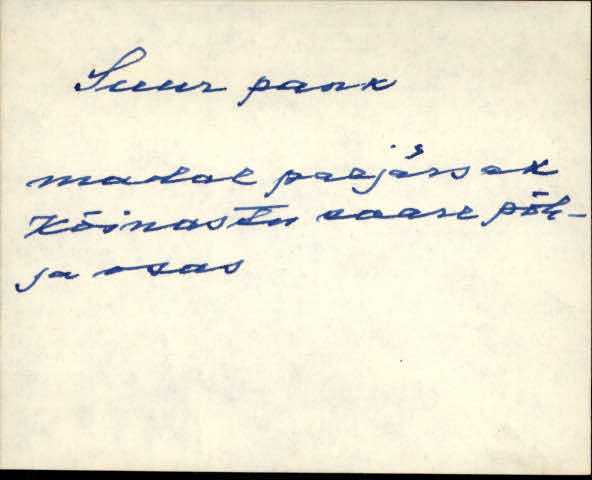 Suur pank
madal paejärsak
Kõinastu saare põh-
ja osas